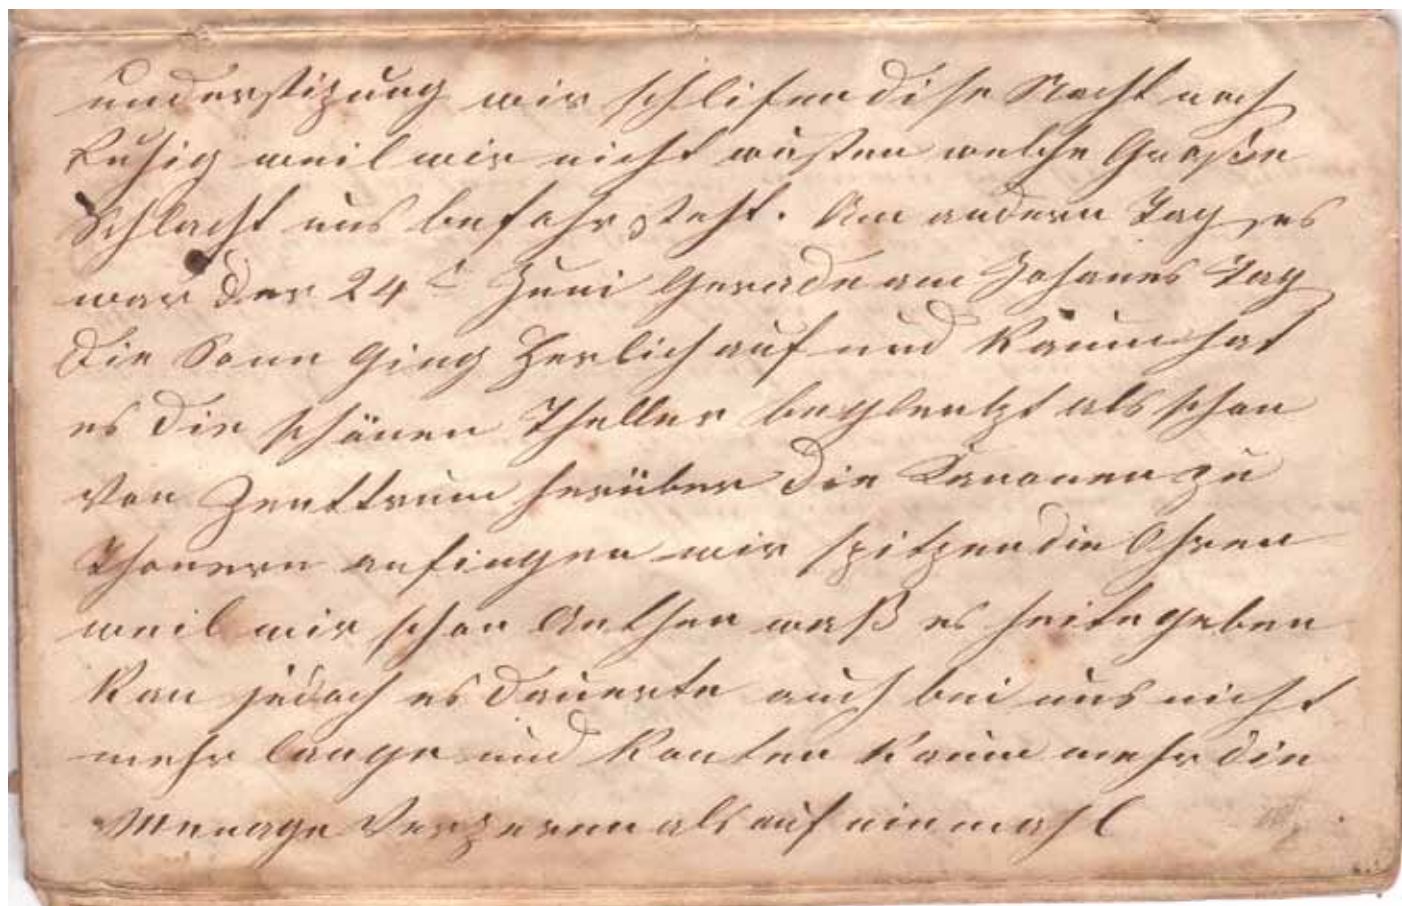 understizung wir schlifen dise Nacht noch
Ruhig weil wir nicht wusten welche Grosse
Schlacht uns befohr steht. Am andern Tag es
war der 24t Juni Gerade am Johanes Tag
Die Sonn Ging Herlich auf und Kaum hat
es die schönen Theller beglentzt als schon
von Zenttrum herüber die Kanonen zu
Thonern anfingen wir spitzen die Ohren
weil wir schon Anthen waß es heite geben
Kan jedoch es Dauerte auch bei uns nicht
mehr lange und Konten kaum mehr die
Menage Verzeren als auf ein mahl